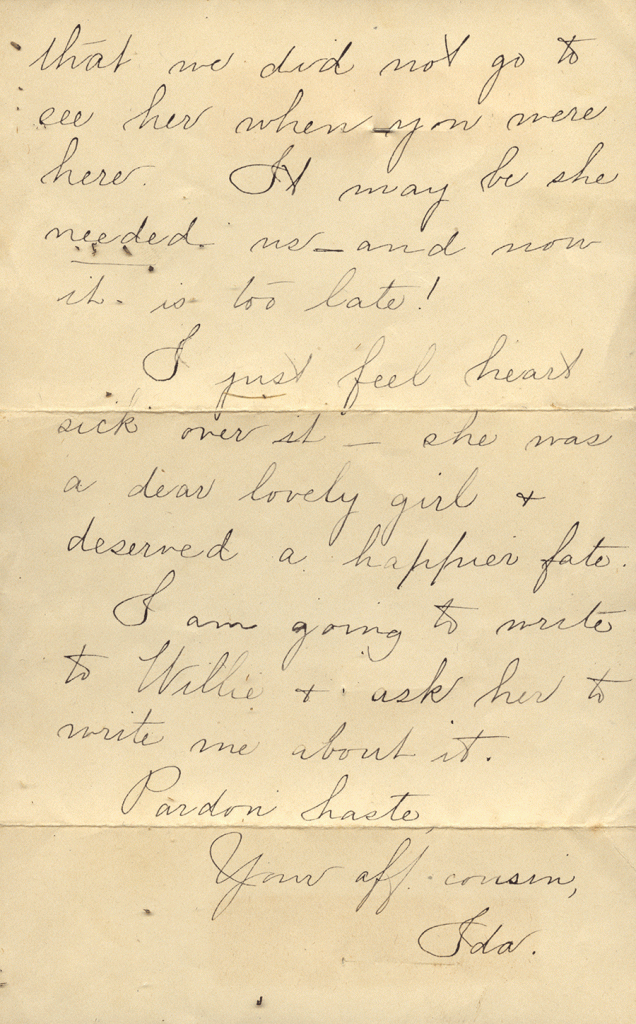 that we did not go to
see her when you were
here. It may be she
needed us – and now
it is too late!
I just feel heart
sick over it – she was
a dear lovely girl +
deserved a happier fate.
I am going to write
to Willie + ask her to
write me about it.
Pardon haste,
Your aff. cousin,
Ida.